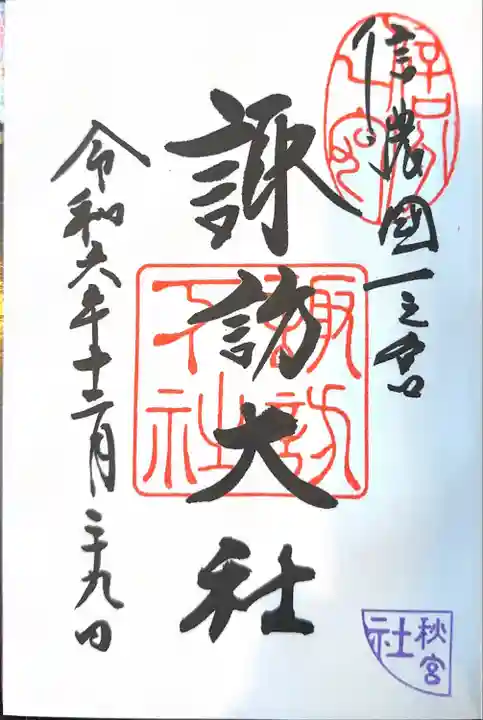 信濃國一之宮
諏訪大社
諏訪
下社
令和六年十二月二十九日
秋宮
社